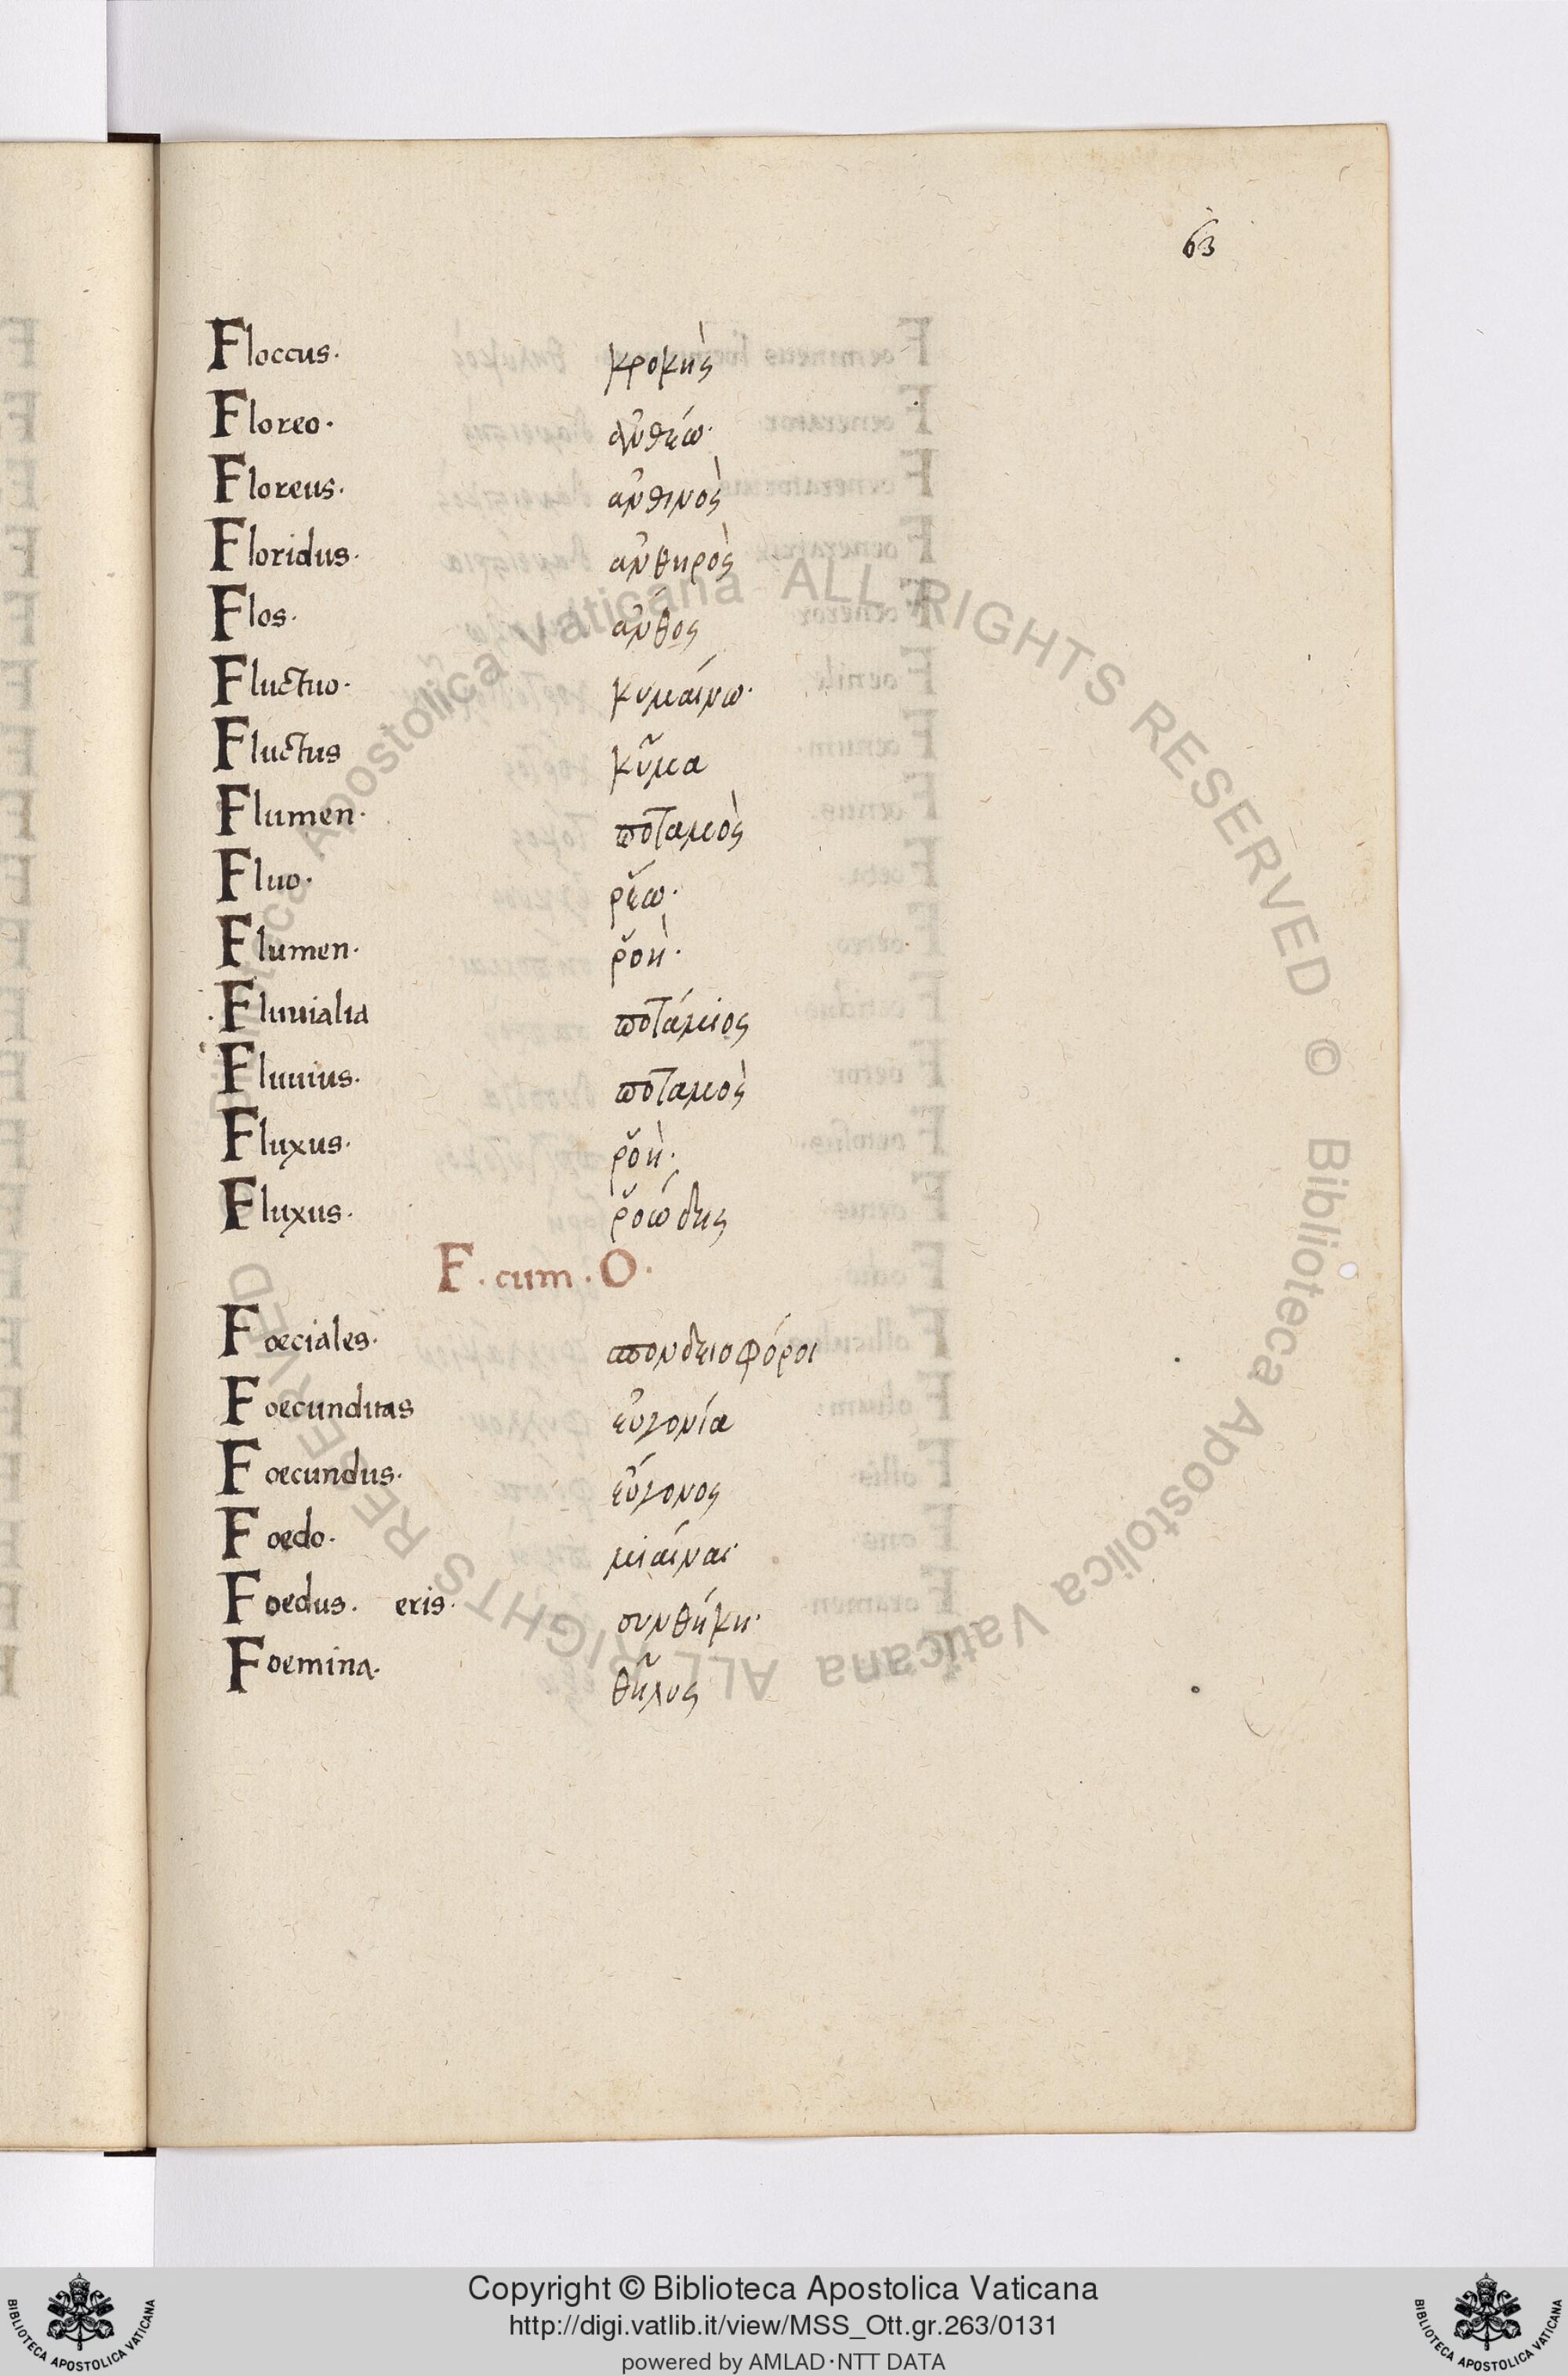 63
Floccus. κροκὴς
Floreo. ἀνθέω.
Floreus. ἀνθινὸς
Floridus. ἀνθηρὸς
Flos. ἄνθος
Fluctuo. κυμαίνω.
Fluctus κῦμα
Flumen. ποταμὸς
Fluo. ῥέω.
Flumen. ῥοὴ.
Fluuialia ποτάμιος
Fluuius. ποταμὸς
Fluxus. ῥοὴ.
Fluxus. ῥοώδης
F. cum. O.
Foeciales.
Foecunditas εὐγονία
Foecundus. εὔγονος
Foedo. μιαίναι
Foedus. eris. συνθήκη.
Foemina. θῆλυς
Biblioteca Apostolica Vaticana ALL RIGHTS RESERVED © Biblioteca Apostolica Vaticana ALL RIGHTS RESERVED
Copyright © Biblioteca Apostolica Vaticana
http://digi.vatlib.it/view/MSS_Ott.gr.263/0131
powered by AMLAD·NTT DATA
BIBLIOTECA APOSTOLICA VATICANA
BIBLIOTECA APOSTOLICA VATICANA